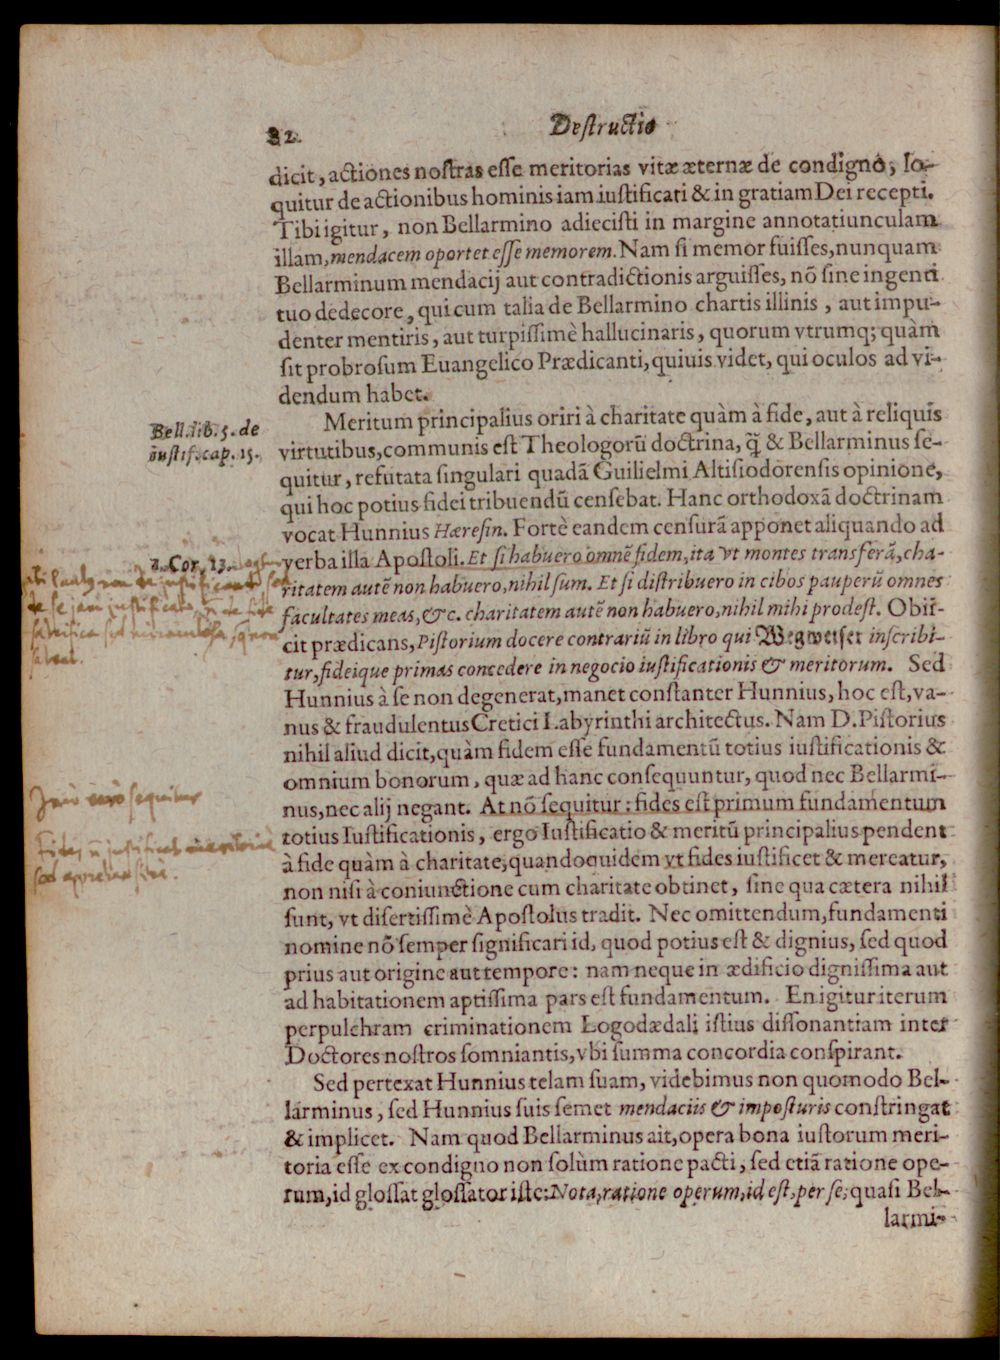 82. Destructio
dicit, actiones nostras esse meritorias vitæ æternæ de condigno, lo-
quitur de actionibus hominis iam iustificati & in gratiam Dei recepti.
Tibi igitur, non Bellarmino adiecisti in margine annotatiunculam
illam, mendacem oportet esse memorem. Nam si memor fuisses, nunquam
Bellarminum mendacij aut contradictionis arguisses, nō sine ingenti
tuo dedecore, qui cum talia de Bellarmino chartis illinis, aut impu-
denter mentiris, aut turpissimè hallucinaris, quorum vtrumq; quàm
sit probrosum Euangelico Prædicanti, quiuis videt, qui oculos ad vi-
dendum habet.
Meritum principalius oriri à charitate quàm à fide, aut à reliquis
Bell. lib. 5. de
iustif. cap. 15.
virtutibus, communis est Theologorū doctrina, q̄ & Bellarminus se-
quitur, refutata singulari quadā Guilielmi Altisiodorensis opinione,
qui hoc potius fidei tribuendū censebat. Hanc orthodoxā doctrinam
vocat Hunnius Hæresin. Fortè eandem censurā apponet aliquando ad
1. Cor. 13.
verba illa Apostoli. Et si habuero omnē fidem, ita vt montes transferā, cha-
ritatem autē non habuero, nihil sum. Et si distribuero in cibos pauperū omnes
facultates meas, &c. charitatem autē non habuero, nihil mihi prodest. Obii-
cit prædicans, Pistorium docere contrariū in libro qui Wegweiser inscribi-
tur, fideique primas concedere in negocio iustificationis & meritorum. Sed
Hunnius à se non degenerat, manet constanter Hunnius, hoc est, va-
nus & fraudulentus Cretici Labyrinthi architectus. Nam D. Pistorius
nihil aliud dicit, quàm fidem esse fundamentū totius iustificationis &
omnium bonorum, quæ ad hanc consequuntur, quod nec Bellarmi-
nus, nec alij negant. At nō sequitur: fides est primum fundamentum
sequitur
totius Iustificationis, ergo Iustificatio & meritū principalius pendent
à fide quàm à charitate, quandoquidem vt fides iustificet & mereatur,
Fides iustificat
non nisi à coniunctione cum charitate obtinet, sine qua cætera nihil
sunt, vt disertissimè Apostolus tradit. Nec omittendum, fundamenti
nomine nō semper significari id, quod potius est & dignius, sed quod
prius aut origine aut tempore: nam neque in ædificio dignissima aut
ad habitationem aptissima pars est fundamentum. En igitur iterum
perpulchram criminationem Logodædali istius dissonantiam inter
Doctores nostros somniantis, vbi summa concordia conspirant.
Sed pertexat Hunnius telam suam, videbimus non quomodo Bel-
larminus, sed Hunnius suis semet mendaciis & imposturis constringat
& implicet. Nam quod Bellarminus ait, opera bona iustorum meri-
toria esse ex condigno non solùm ratione pacti, sed etiā ratione ope-
rum, id glossat glossator iste: Nota, ratione operum, id est, per se; quasi Bel-
larmi-